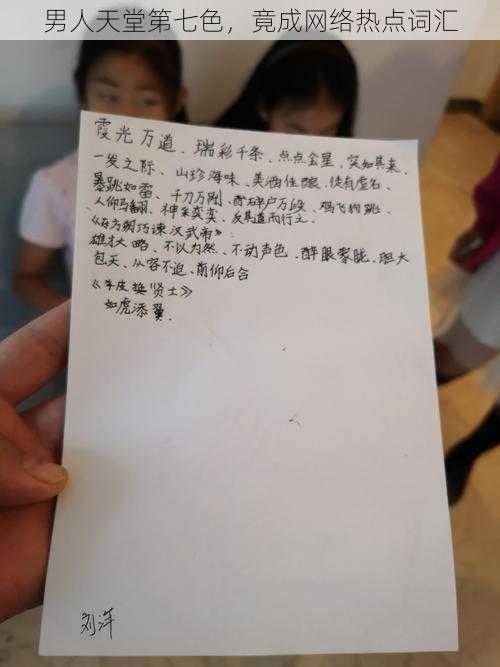 男人天堂第七色，竟成网络热点词汇
霞光万道、瑞彩千条、点点金星、突如其来、
一发之际、山珍海味、美酒佳酿、徒有虚名、
暴跳如雷、千刀万剐、碎尸万段、鸡飞狗跳、
人仰马翻、神采奕奕、反其道而行之、
《东方朔巧谏汉武帝》：
雄才大略、不以为然、不动声色、醉眼蒙眬、胆大
包天、从容不迫、前仰后合
《羊皮换贤士》
如虎添翼.
刘洋